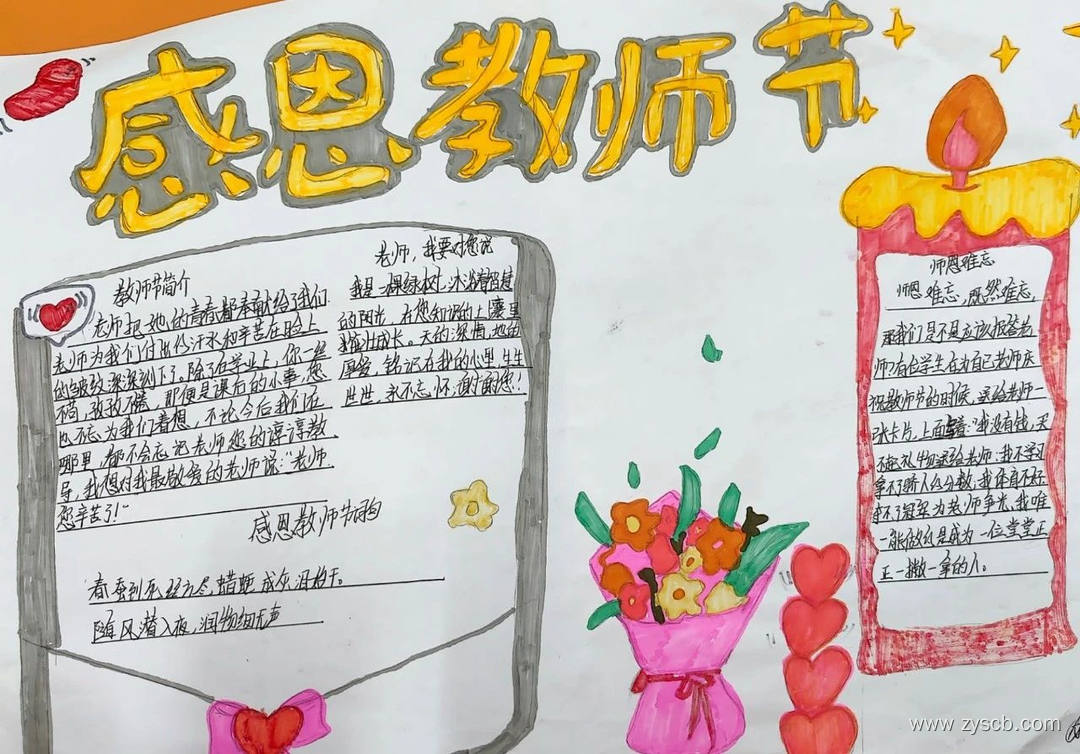 感恩教师节
教师节简介
老师把她的青春都奉献给了我们
老师为我们付出的汗水和辛苦在脸上
的皱纹深深刻下了。除了在学业上,你一丝
不苟,孜孜不倦,那便是课后的小事,您
也不忘为我们着想,不论今后我们在
哪里,都不会忘记老师您的谆谆教
导,我想对我最敬爱的老师说:"老师
您辛苦了!"
老师,我要对您说
我是一棵绿树,沐浴着智慧
的阳光,在您知识的土壤里
茁壮成长。天的深情,地的
厚爱,铭记在我的心里,生生
世世,永不忘怀,谢谢您!
感恩教师节诗句
春蚕到死丝方尽,蜡炬成灰泪始干。
随风潜入夜,润物细无声
师恩难忘
师恩难忘,既然难忘,
那我们是不是应该报答老
师?有位学生在为自己老师庆
祝教师节的时候,送给老师一
张卡片,上面写着:"我没有钱,买
不起礼物送给老师;我不学习
拿不了骄人的分数;我体育不好
拿不了冠架为老师争光,我唯
一能做的是成为一位堂堂正
正一撇一拿的人。
www.zyscb.com